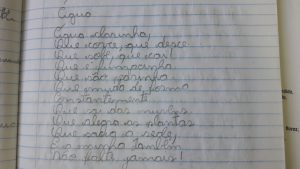 Água
Água clarinha,
Que corre, que desce
Que sobe, que cai
Que é fumacinha
Que não
Que muda de forma
Constantemente
Que sai das nuvens
Que alegra as plantas
Que sacia a sede,
E a minha também
Não falte jamais!